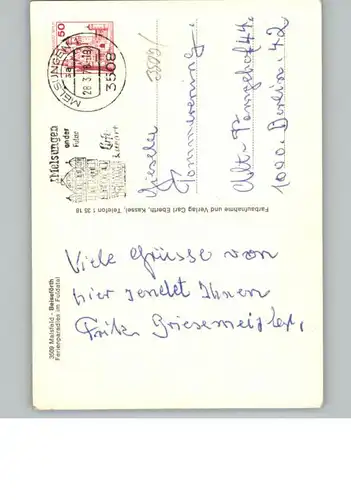 3509 Malsfeld - Beiseförth
Ferienparadies im Fuldatal
Viele Grüsse von
hier sendet Ihnen
Fritz Griesemeister,
Farbaufnahme und Verlag Carl Eberth, Kassel, Telefon 1 35 18
MELSUNGEN
28.3.78
3508
50
Melsungen
an der
Fulda
Luft-
kurort
Giesela
Alt-Tempelhof 44.
1000. Berlin. 42